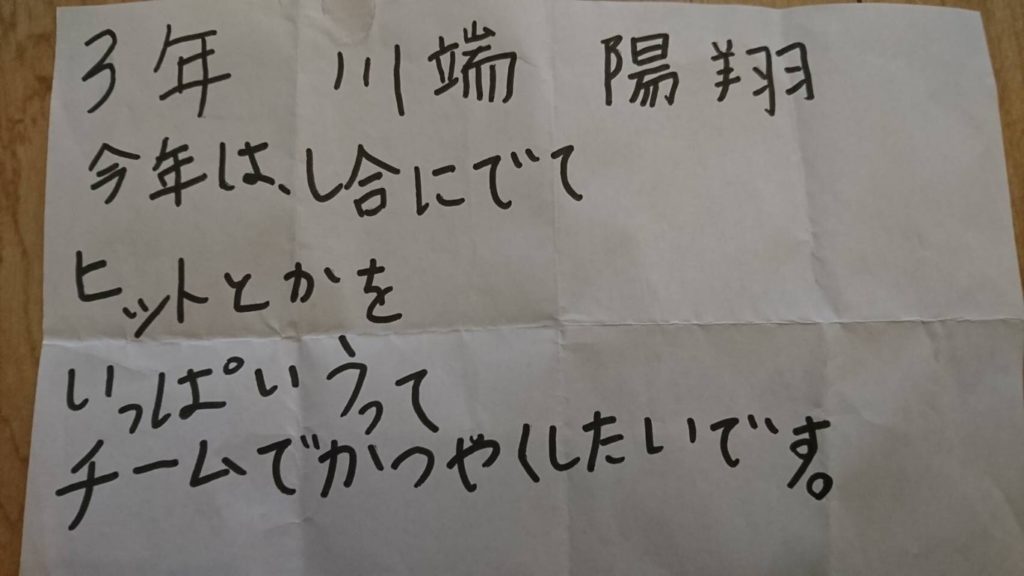 3年 川端 陽翔
今年は、し合にでて
ヒットとかを
いっぱいうって
チームでかつやくしたいです。